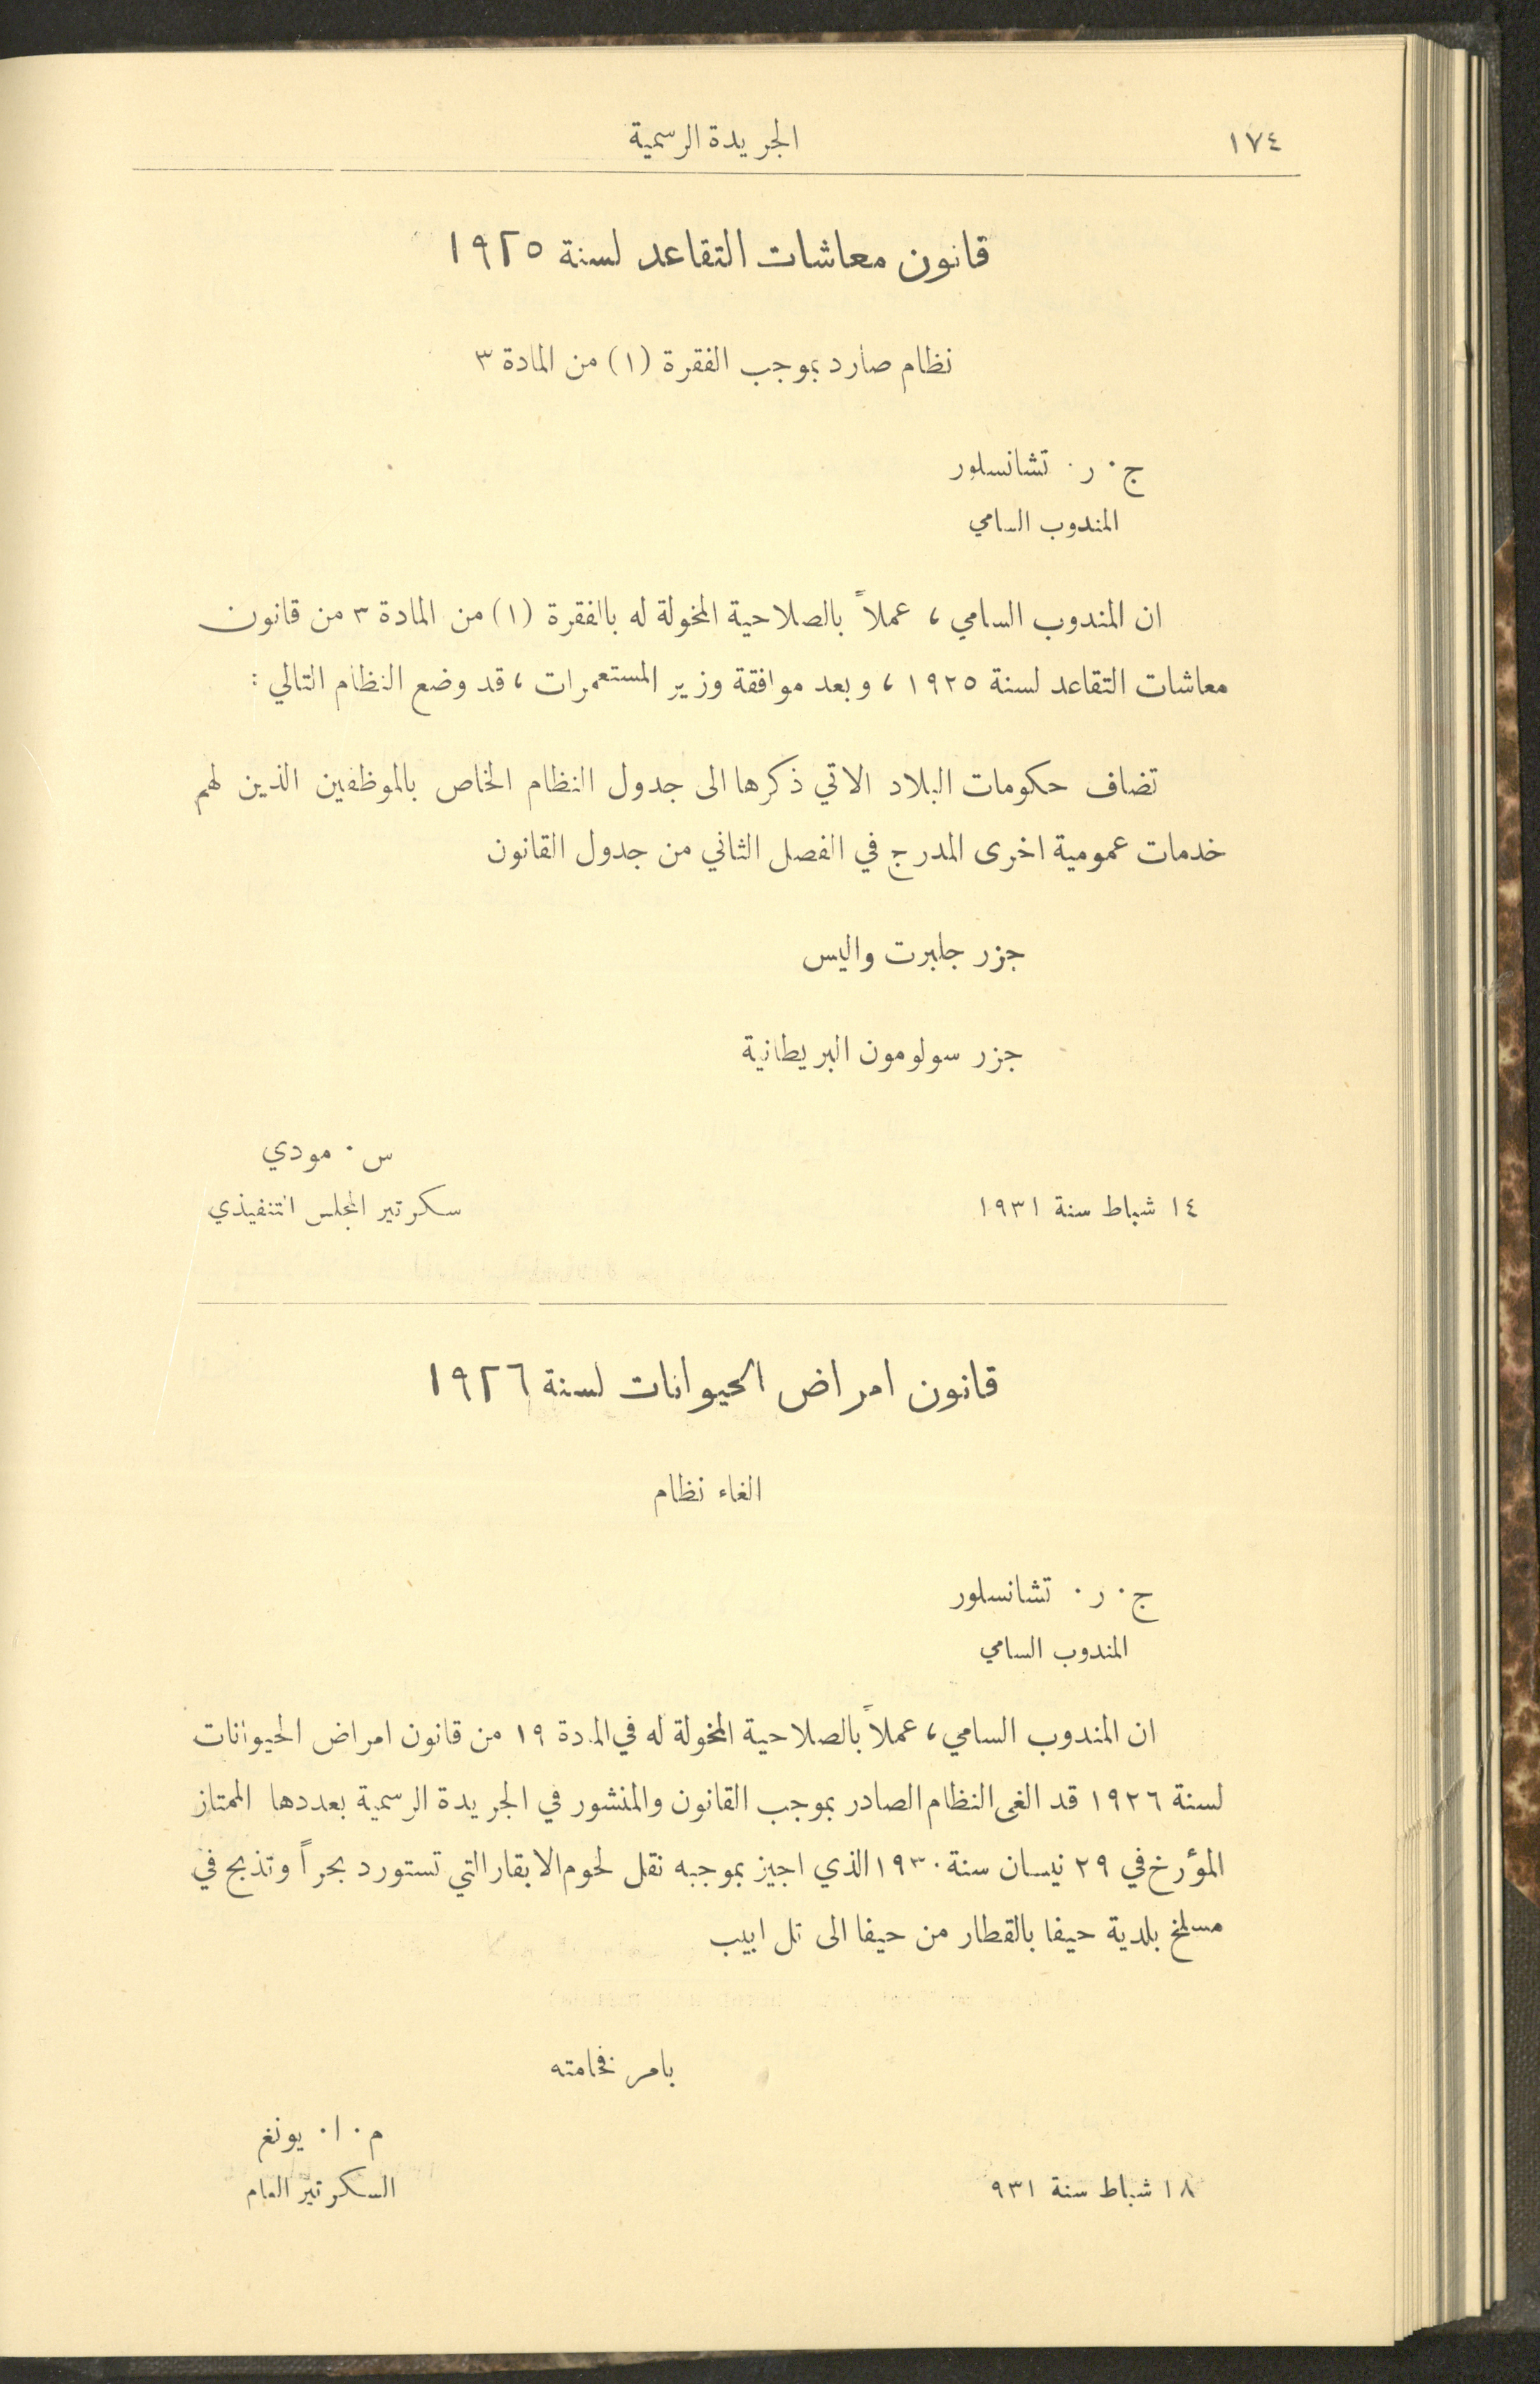 ١٧٤
الجريدة الرسمية
قانون معاشات التقاعد لسنة ١٩٢٥
نظام صارد بموجب الفقرة (١) من المادة ٣
ج. ر. تشانسلور
المندوب السامي
ان المندوب السامي، عملاً بالصلاحية المخولة له بالفقرة (١) من المادة ٣ من قانون
معاشات التقاعد لسنة ١٩٢٥، وبعد موافقة وزير المستعمرات، قد وضع النظام التالي :
تضاف حكومات البلاد الاتي ذكرها الى جدول النظام الخاص بالموظفين الذين لهم
خدمات عمومية اخرى المدرج في الفصل الثاني من جدول القانون
جزر جلبرت واليس
جزر سولومون البريطانية
س. مودي
سكرتير المجلس التنفيذي
١٤ شباط سنة ١٩٣١
قانون امراض الحيوانات لسنة ١٩٢٦
الغاء نظام
ج. ر. تشانسلور
المندوب السامي
ان المندوب السامي، عملاً بالصلاحية المخولة له في المادة ١٩ من قانون امراض الحيوانات
لسنة ١٩٢٦ قد الغى النظام الصادر بموجب القانون والمنشور في الجريدة الرسمية بعددها الممتاز
المؤرخ في ٢٩ نيسان سنة ١٩٣٠ الذي اجيز بموجبه نقل لحوم الابقار التي تستورد بحراً وتذبح في
مسلخ بلدية حيفا بالقطار من حيفا الى تل ابيب
بامر فخامته
م. ا. يونغ
السكرتير العام
١٨ شباط سنة ٩٣١